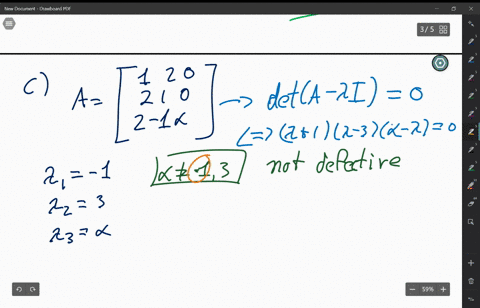 New Document - Drawboard PDF
3 / 5
c)
A = [1 2 0
2 1 0
2 -1 α]
→ det(A - λI) = 0
<=> (λ+1)(λ-3)(α-λ) = 0
λ1 = -1
λ2 = 3
λ3 = α
α ≠ -1, 3
not defective
59%